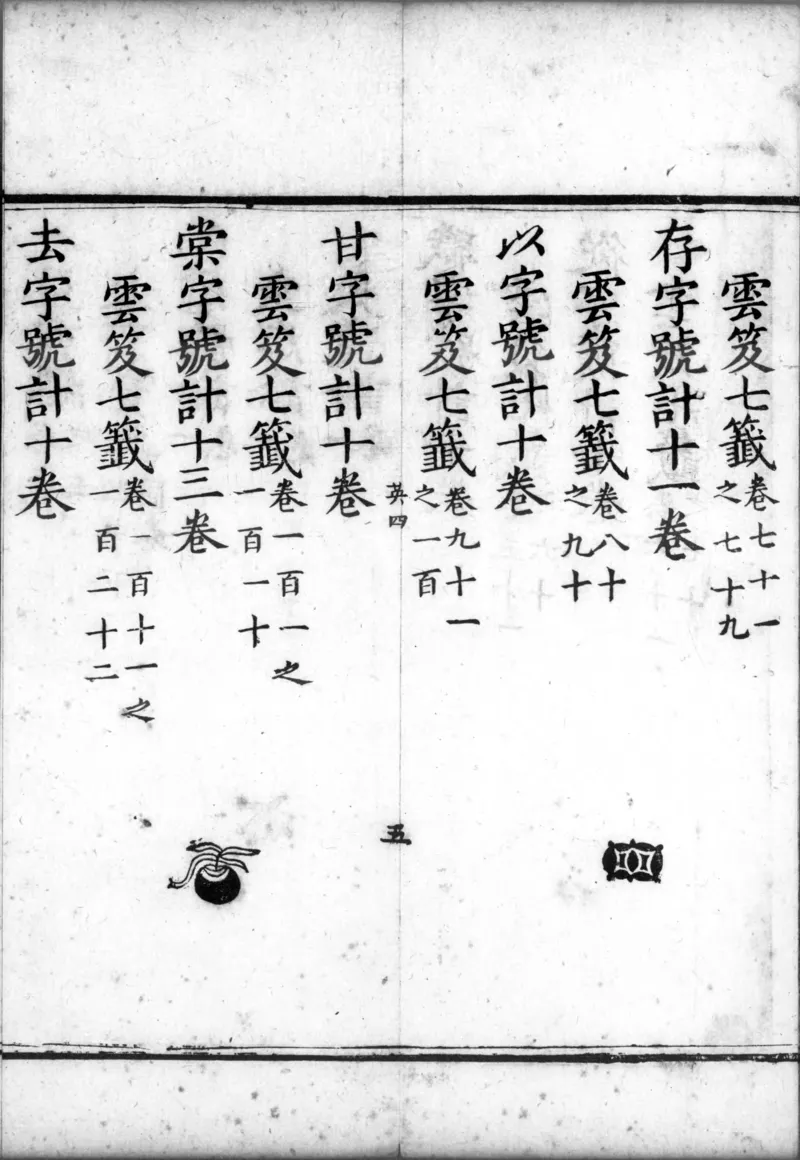 雲笈七籤卷七十一之七十九
存字號計十一卷
雲笈七籤卷八十之九十
以字號計十卷
雲笈七籤卷九十一之一百
英四
五
甘字號計十卷
雲笈七籤卷一百一之一百一十
棠字號計十三卷
雲笈七籤卷一百十一之一百二十二
去字號計十卷